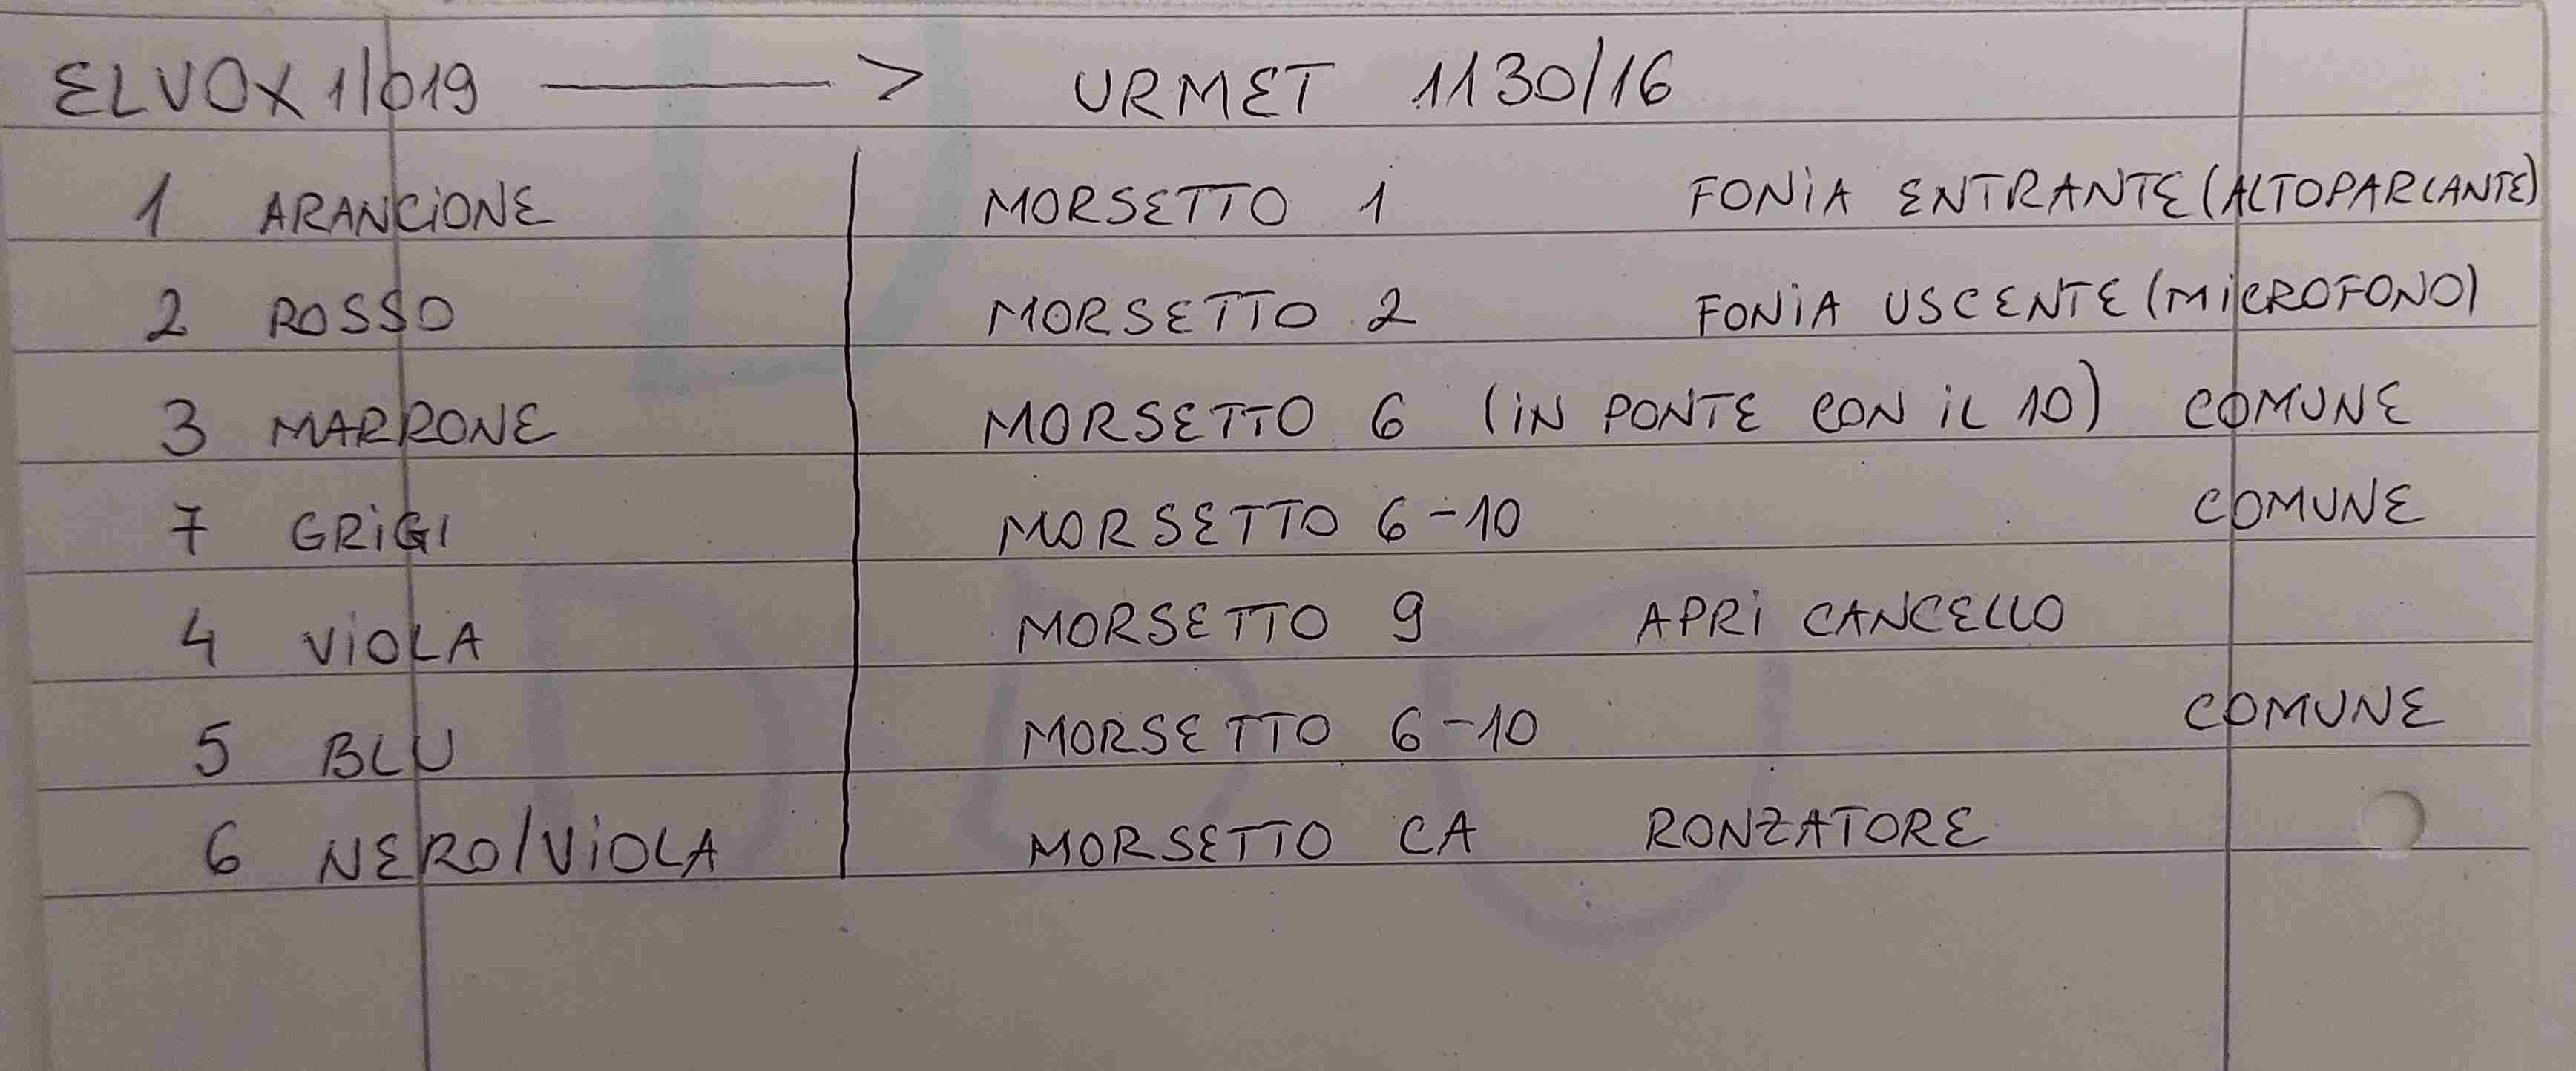 ELVOX 1/019 ——> URMET 1130/16
1 ARANCIONE MORSETTO 1 FONIA ENTRANTE (ALTOPARLANTE)
2 ROSSO MORSETTO 2 FONIA USCENTE (MICROFONO)
3 MARRONE MORSETTO 6 (IN PONTE CON IL 10) COMUNE
7 GRIGI MORSETTO 6-10 COMUNE
4 VIOLA MORSETTO 9 APRI CANCELLO
5 BLU MORSETTO 6-10 COMUNE
6 NERO/VIOLA MORSETTO CA RONZATORE